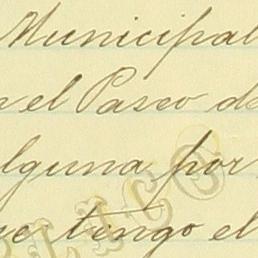 Municipal
el Paseo de
alguna por
se tengo el
BLICO